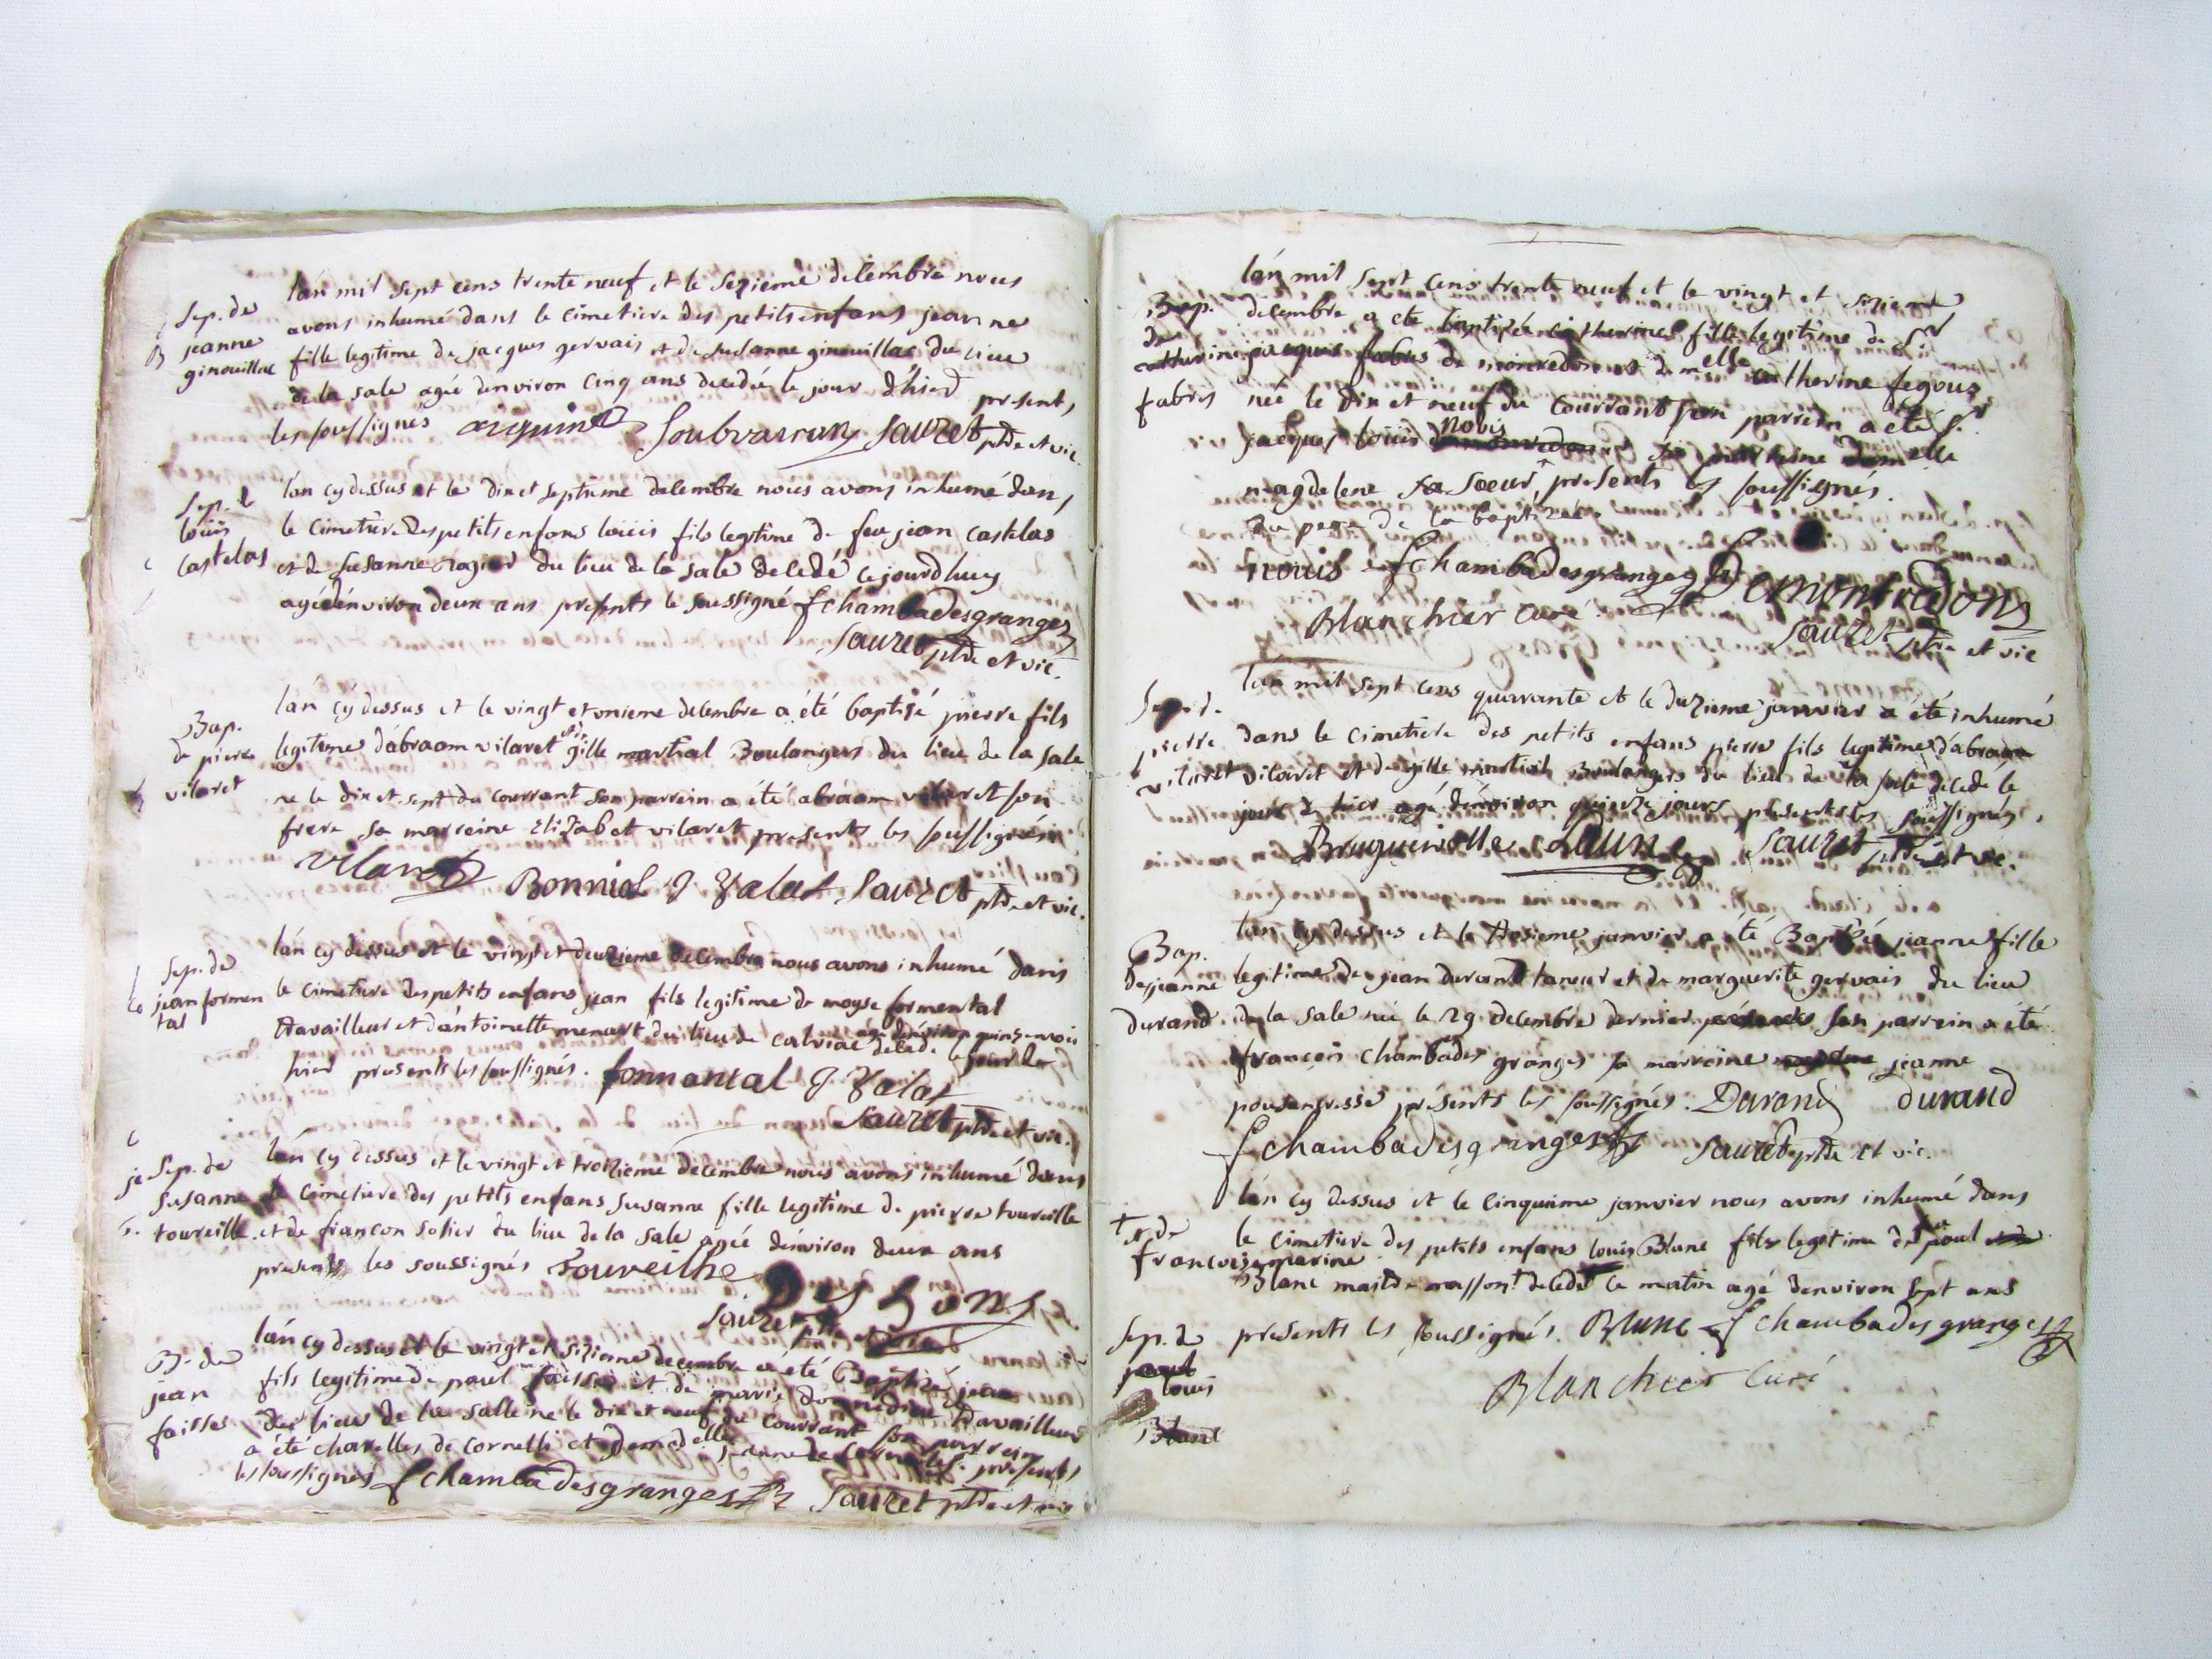 Sep. de
jeanne
ginouillac
lán mil sept cens trente neuf et le sezieme decembre nous
avons inhumé dans le cimetiere des petits enfans jeanne
fille legitime de jacques gervais et de susanne ginouillac du lieu
de la sale agée denviron cinq ans decedée le jour d'hier
presents
les soussignés Soubvairan Sauzet ptre et vic.
Sep. de
loüis
castelas
lán cy dessus et le dix et septieme decembre nous avons inhumé dans
le cimetiere des petits enfans loüis fils legitime de feu jean castelas
et de susanne du lieu de la sale decedé ce jourdhuy
agé dénviron deux ans presents le soussigné f chambadesgranges
Sauzet ptre et vic.
Bap.
de pierre
vilaret
lán cy dessus et le vingt et onieme decembre a été baptisé pierre fils
legitime dábraam vilaret et de gille martial Boulangers du lieu de la sale
ne le dix et sept du courrant son parrein a été abraam vilaret son
frere sa marreine Elizabet vilaret presents les soussignés
vilaret Bonniol J Valat Sauzet ptre et vic.
Sep. de
jean formen
tal
lán cy dessus et le vingt et deuzieme decembre nous avons inhumé dans
le cimetiere des petits enfans jean fils legitime de moyse formental
travailleur et dántoinette menurt du lieu de calviac decedé le jour de
agé dénviron quinze mois
hier presents les soussignés. formantal J Valat
Sauzet ptre et vic.
Sep. de
susanne
toureille
lán cy dessus et le vingt et troizieme decembre nous avons inhumé dans
le cimetiere des petits enfans susanne fille legitime de pierre toureille
et de francon solier du lieu de la sale agée dénviron deux ans
presents les soussignés Toureilhe
Sauzet ptre
B. de
jean
faisses
lán cy dessus et le vingt et sizieme decembre a été Baptizé jean
fils legitime de paul faisses et de marie travailleur
du lieu de la salle ne le dix et neuf du courrant son parrein
a été charelles de cornelli et demoiselle jeanne de presents
les soussignés f chambadesgranges Sauzet ptre et vic
Bap.
de
catherine
fabres
lán mil sept cens trente neuf et le vingt et sizieme
decembre a eté baptizée catherine fille legitime de Sr
jacques fabres de monredon et de melle catherine fegous
née le dix et neuf du courrant son parrein a été Sr
jacques loüis novis sa marreine demelle
magdelene sa soeur presents les soussignés.
du pere de la baptizée
novis f chambadesgranges Demontredon
Blanchier curé Sauzet ptre et vic
Sep. de
pierre
vilaret
lán mil sept cens quarante et le duzieme janvier a été inhumé
dans le cimetiere des petits enfans pierre fils legitime dábraam
vilaret et de gille martial Boulangers du lieu de la sale decedé le
jour d hier agé dénviron quinze jours presents les soussignés.
Bruguerolle Laune Sauzet ptre et vic.
Bap.
de jeanne
durand
lán cy dessus et le trosieme janvier a été Baptizée jeanne fille
legitime de jean durand taneur et de marguerite gervais du lieu
de la sale née le 29 decembre dernier son parrein a été
françois chambades granges sa marreine jeanne
presents les soussignés. Durand durand
f chambadesgranges Sauzet ptre et vic.
de
francoise
Sep. de
loüis
Blanc
lán cy dessus et le cinquieme janvier nous avons inhumé dans
le cimetiere des petits enfans loüis Blanc fils legitime de paul
Blanc maitre masson decedé ce matin agé denviron sept ans
presents les soussignés. Blanc f chambadesgranges
Blanchier curé